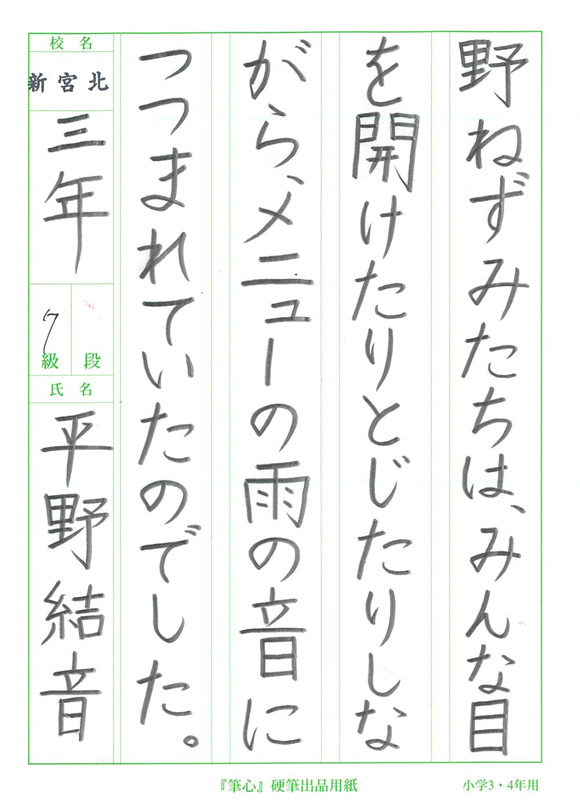 野ねずみたちは、みんな目
を開けたりとじたりしな
がら、メニューの雨の音に
つつまれていたのでした。
校名
新宮北
三年
段
7級
氏名
平野結音
『筆心』硬筆出品用紙
小学3・4年用